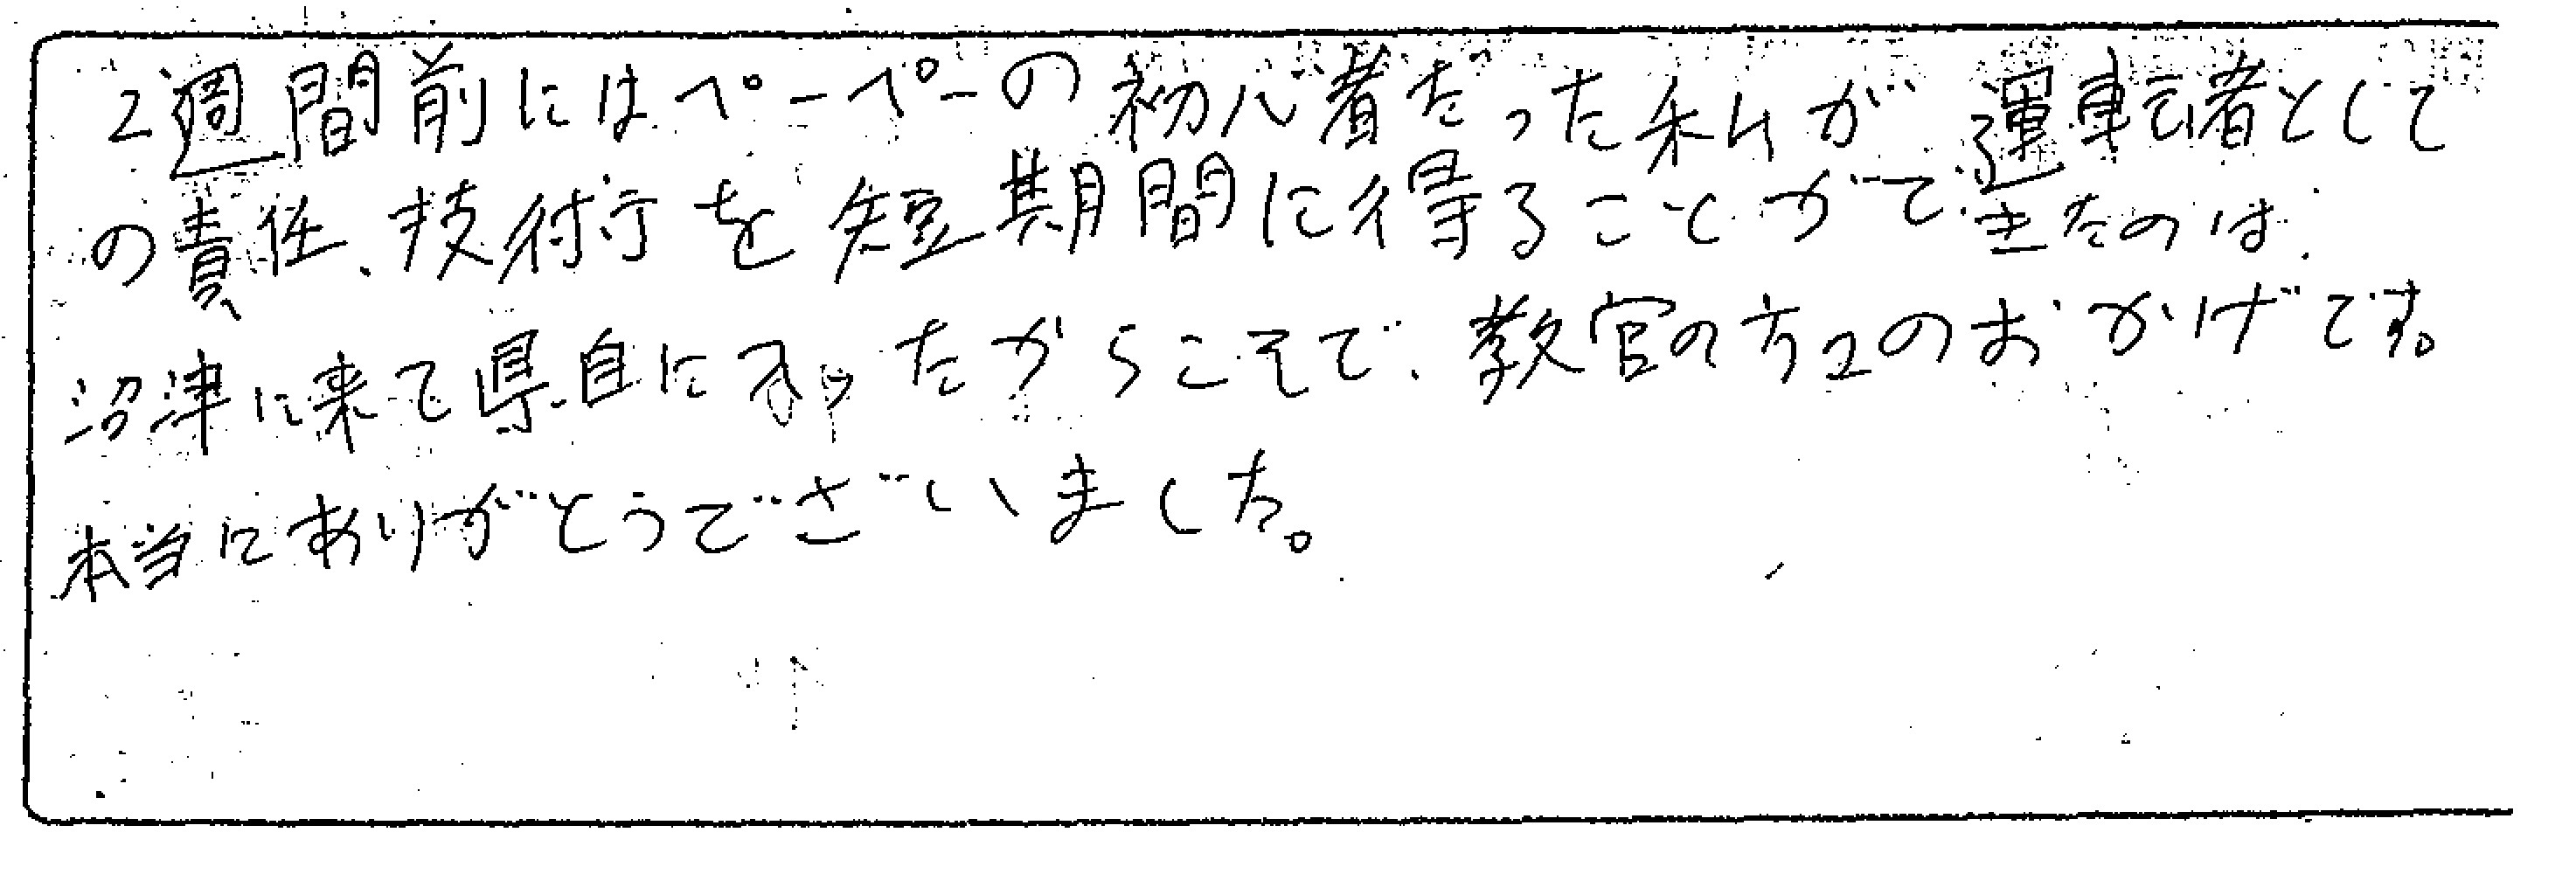 2週間前にはペーペーの初心者だった私が運転者として
の責任、技術を短期間に得ることができたのは、
沼津に来て県自に入ったからこそで、教官の方々のおかげです。
本当にありがとうございました。